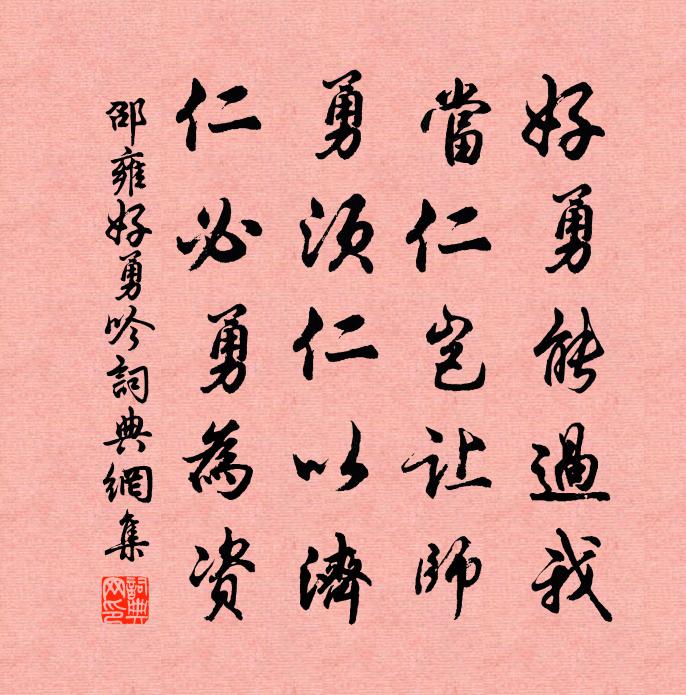 好勇能過我
當仁岂让師
勇須仁以濟
仁必勇為资
邵雍好勇吟詞典網集
詞典網印